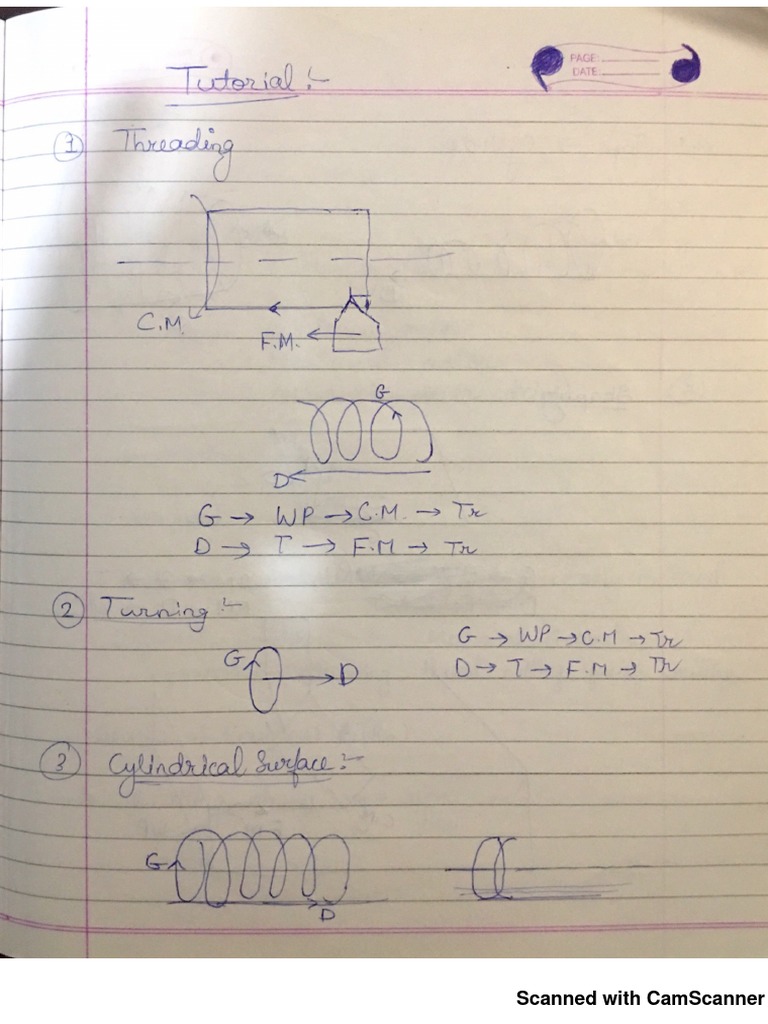 Tutorial :-
PAGE:
DATE:
① Threading
C.M.
F.M.
G
D
G → WP → C.M. → Tr
D → T → F.M → Tr
② Turning :-
G → WP → C.M → Tr
G D
D → T → F.M → Tr
③ Cylindrical Surface :-
G
D
Scanned with CamScanner